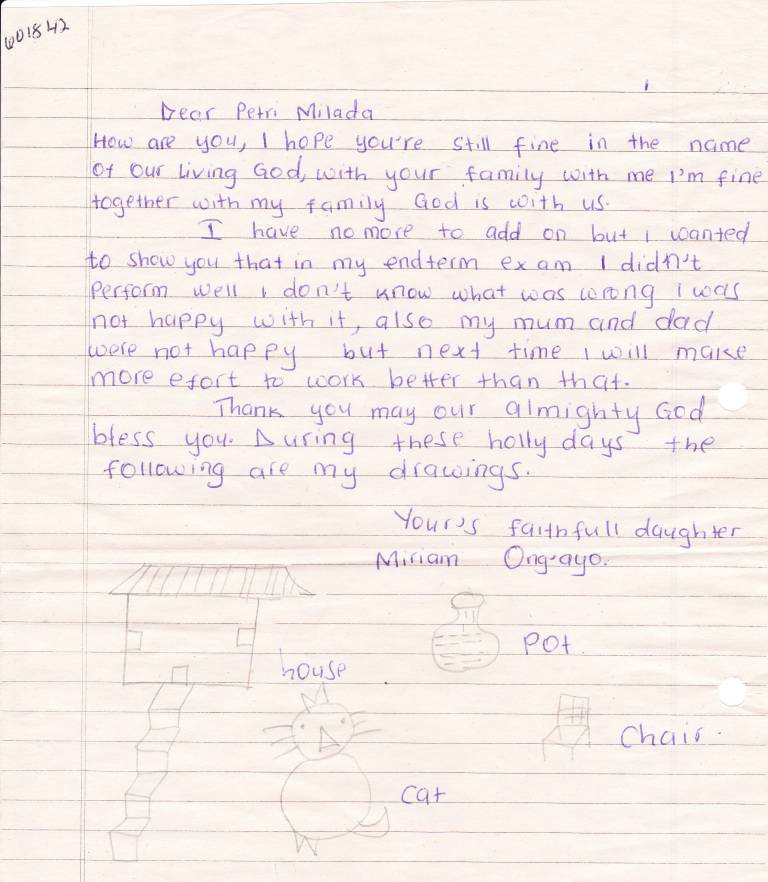 601842
Dear Petri Milada
How are you, I hope you're still fine in the name
of our living God, with your family with me I'm fine
together with my family God is with us.
I have no more to add on but I wanted
to show you that in my endterm exam I didn't
perform well I don't know what was wrong I was
not happy with it, also my mum and dad
were not happy but next time I will make
more efort to work better than that.
Thank you may our almighty God
bless you. During these holly days the
following are my drawings.
Your's faithfull daughter
Miriam Ong'ayo.
house
Pot
Chair.
cat